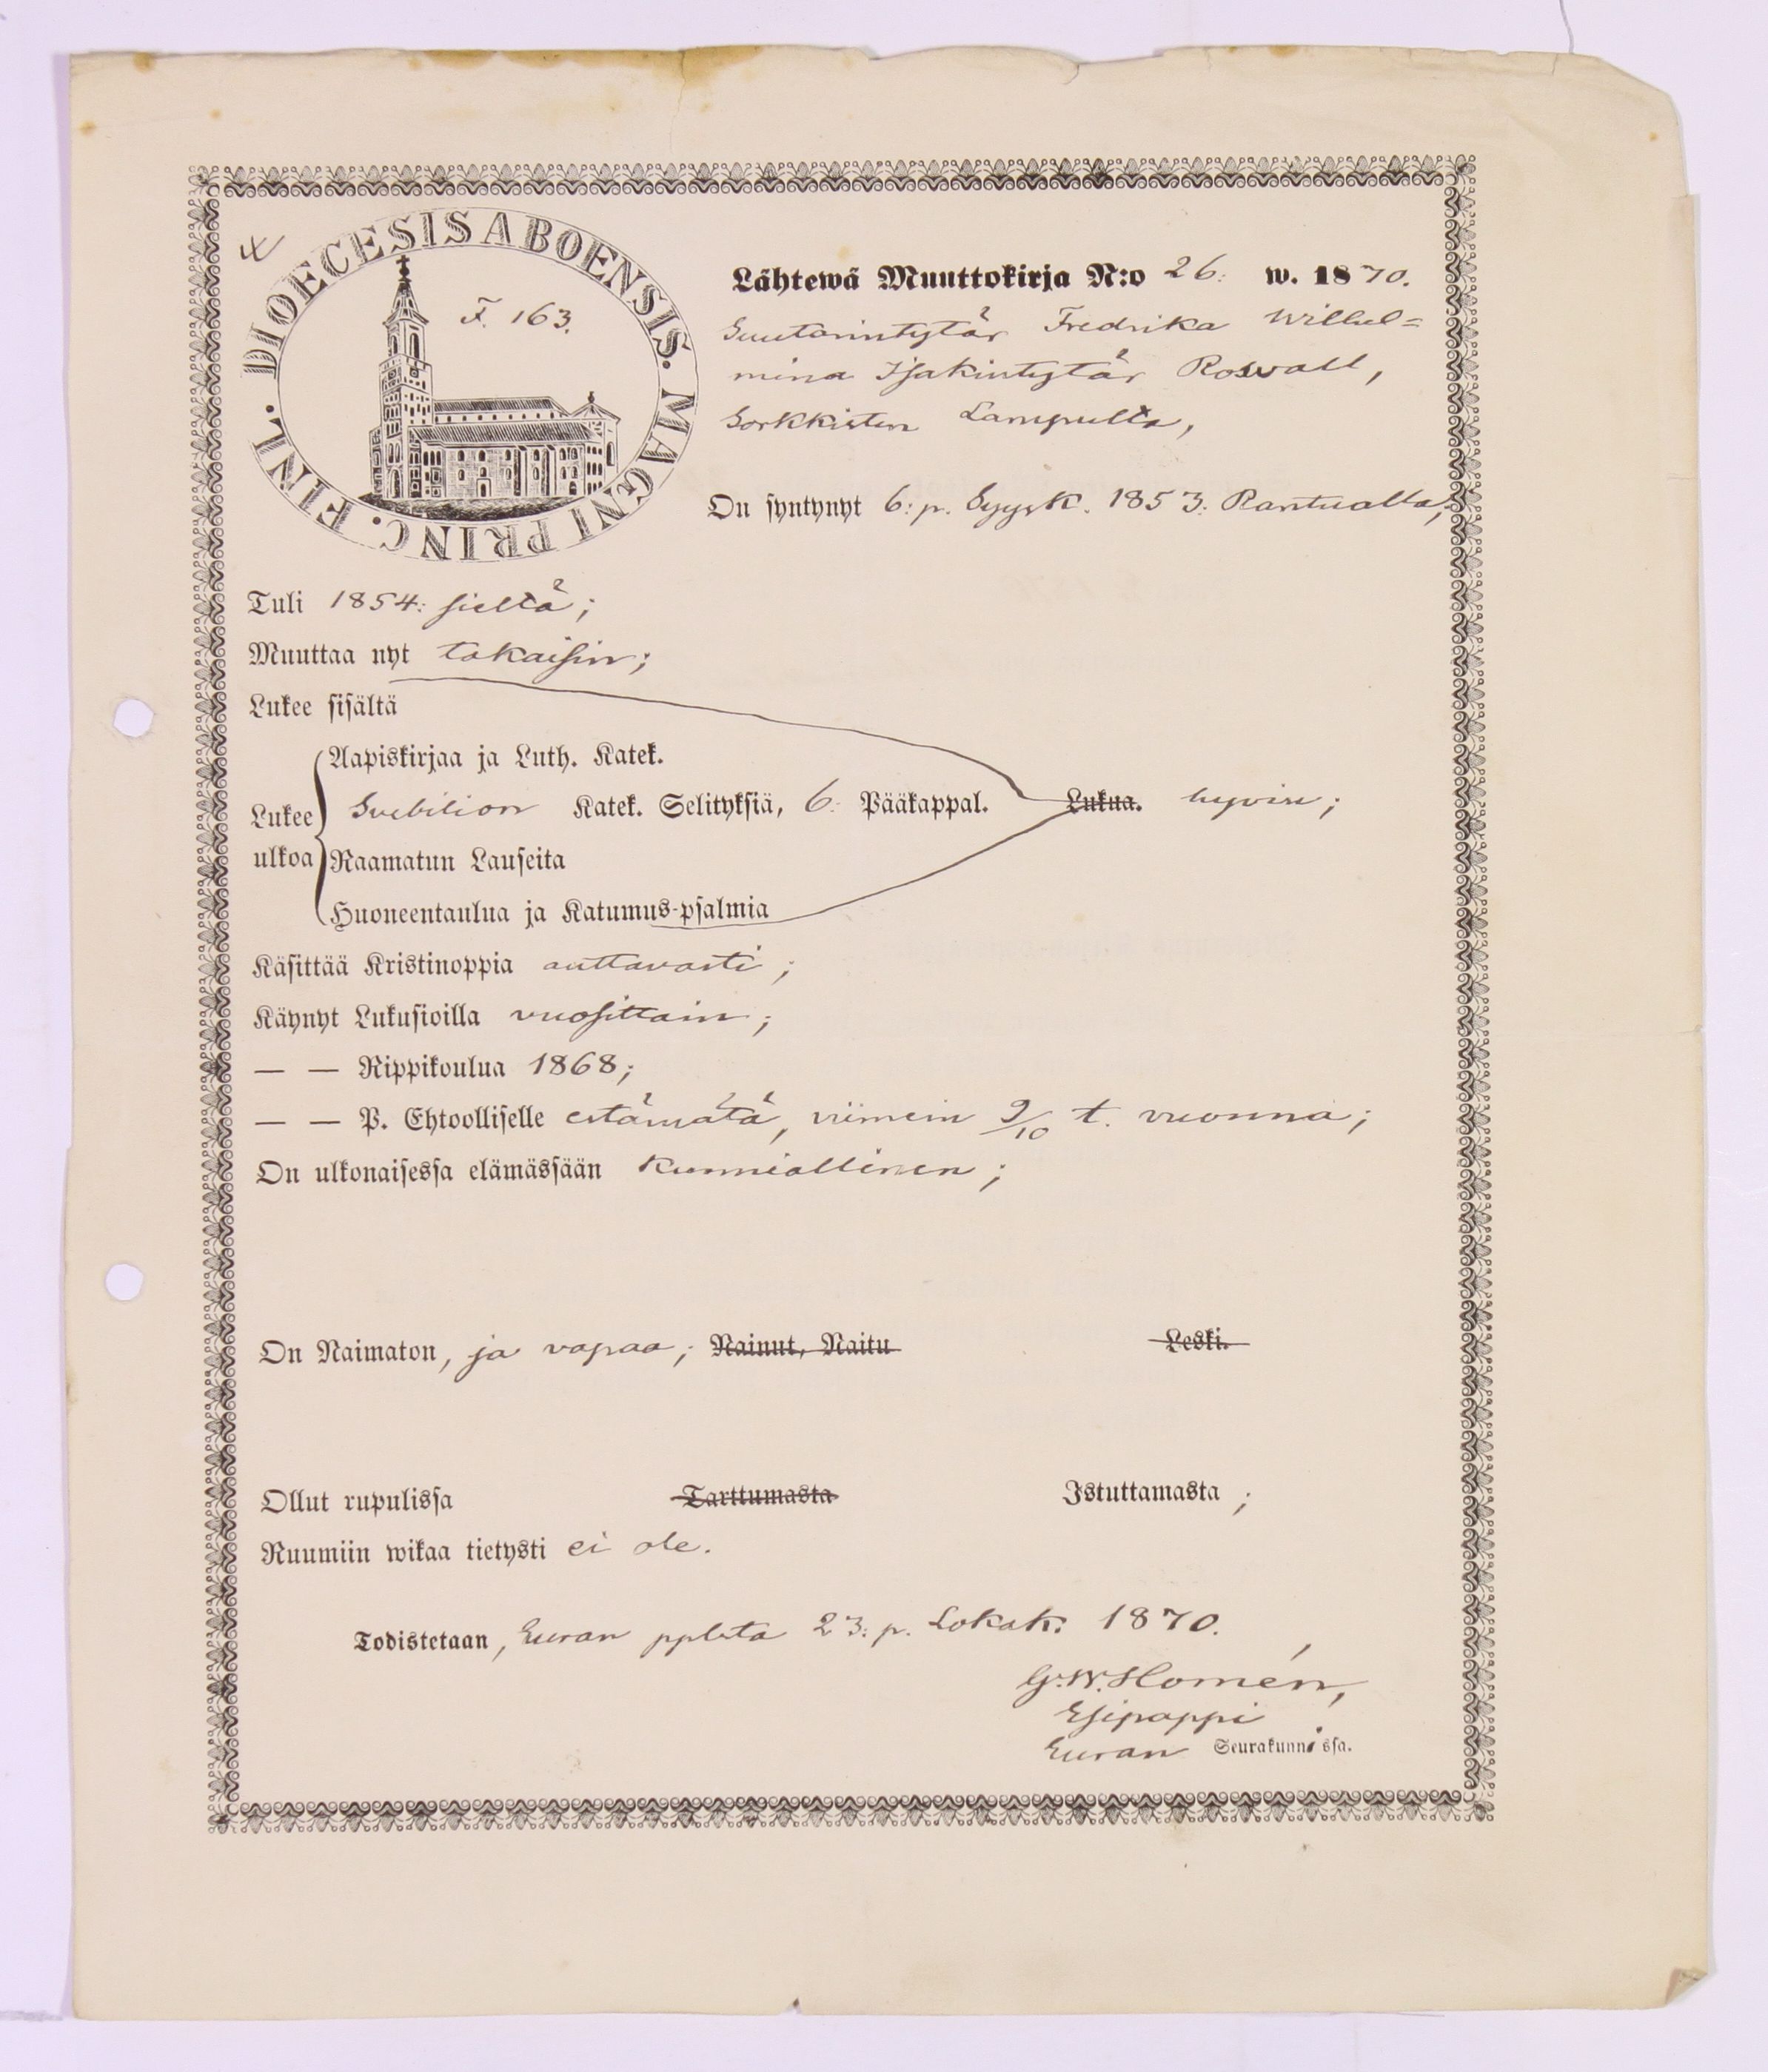 DIOECESIS ABOENSIS. MAGNI PRINC. FINL.
F. 163.
Lähtewä Muuttokirja N:o 26. w. 1870.
Suutarintytär Fredrika Wilhel=
mina Isakintytär Roswall,
Sorkkisten Lampulta,
On syntynyt 6: p. Syysk. 1853. Rantualta,
Tuli 1854: sieltä;
Muuttaa nyt takaisin;
Lukee sisältä
Aapiskirjaa ja Luth. Katek.
Lukee ulkoa Svebilion Katek. Selityksiä, 6: Pääkappal. Lukua. hyvin;
Raamatun Lauseita
Huoneentaulua ja Katumus-psalmia
Käsittää Kristinoppia auttavasti;
Käynyt Lukusioilla vuosittain;
— — Rippikoulua 1868;
— — P. Ehtoolliselle estämätä, viimein 9/10 t. vuonna;
On ulkonaisessa elämässään kunniallinen;
On Naimaton, ja vapaa; Nainut, Naitu Leski.
Ollut rupulissa Tarttumasta Istuttamasta;
Ruumiin wikaa tietysti ei ole.
Todistetaan, Euran pplsta 23: p. Lokak: 1870.
G. W. Homén,
Esipappi
Euran Seurakunnissa.